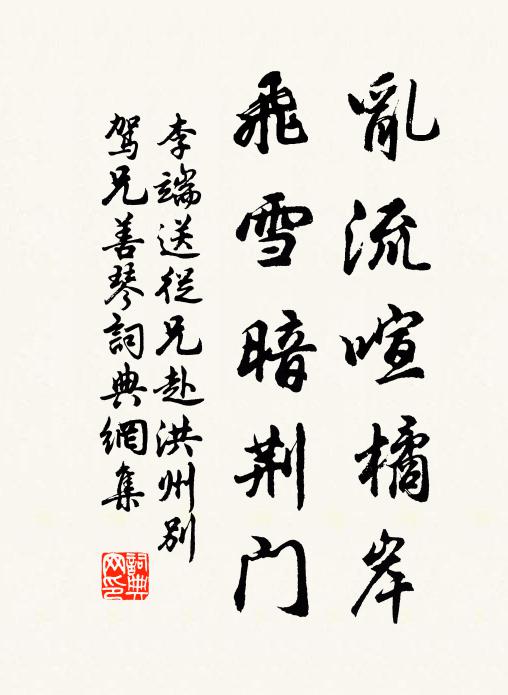 亂流喧橘岸
飛雪暗荆門
李端送從兄赴洪州别
駕兄善琴詞典網集
詞典
网印